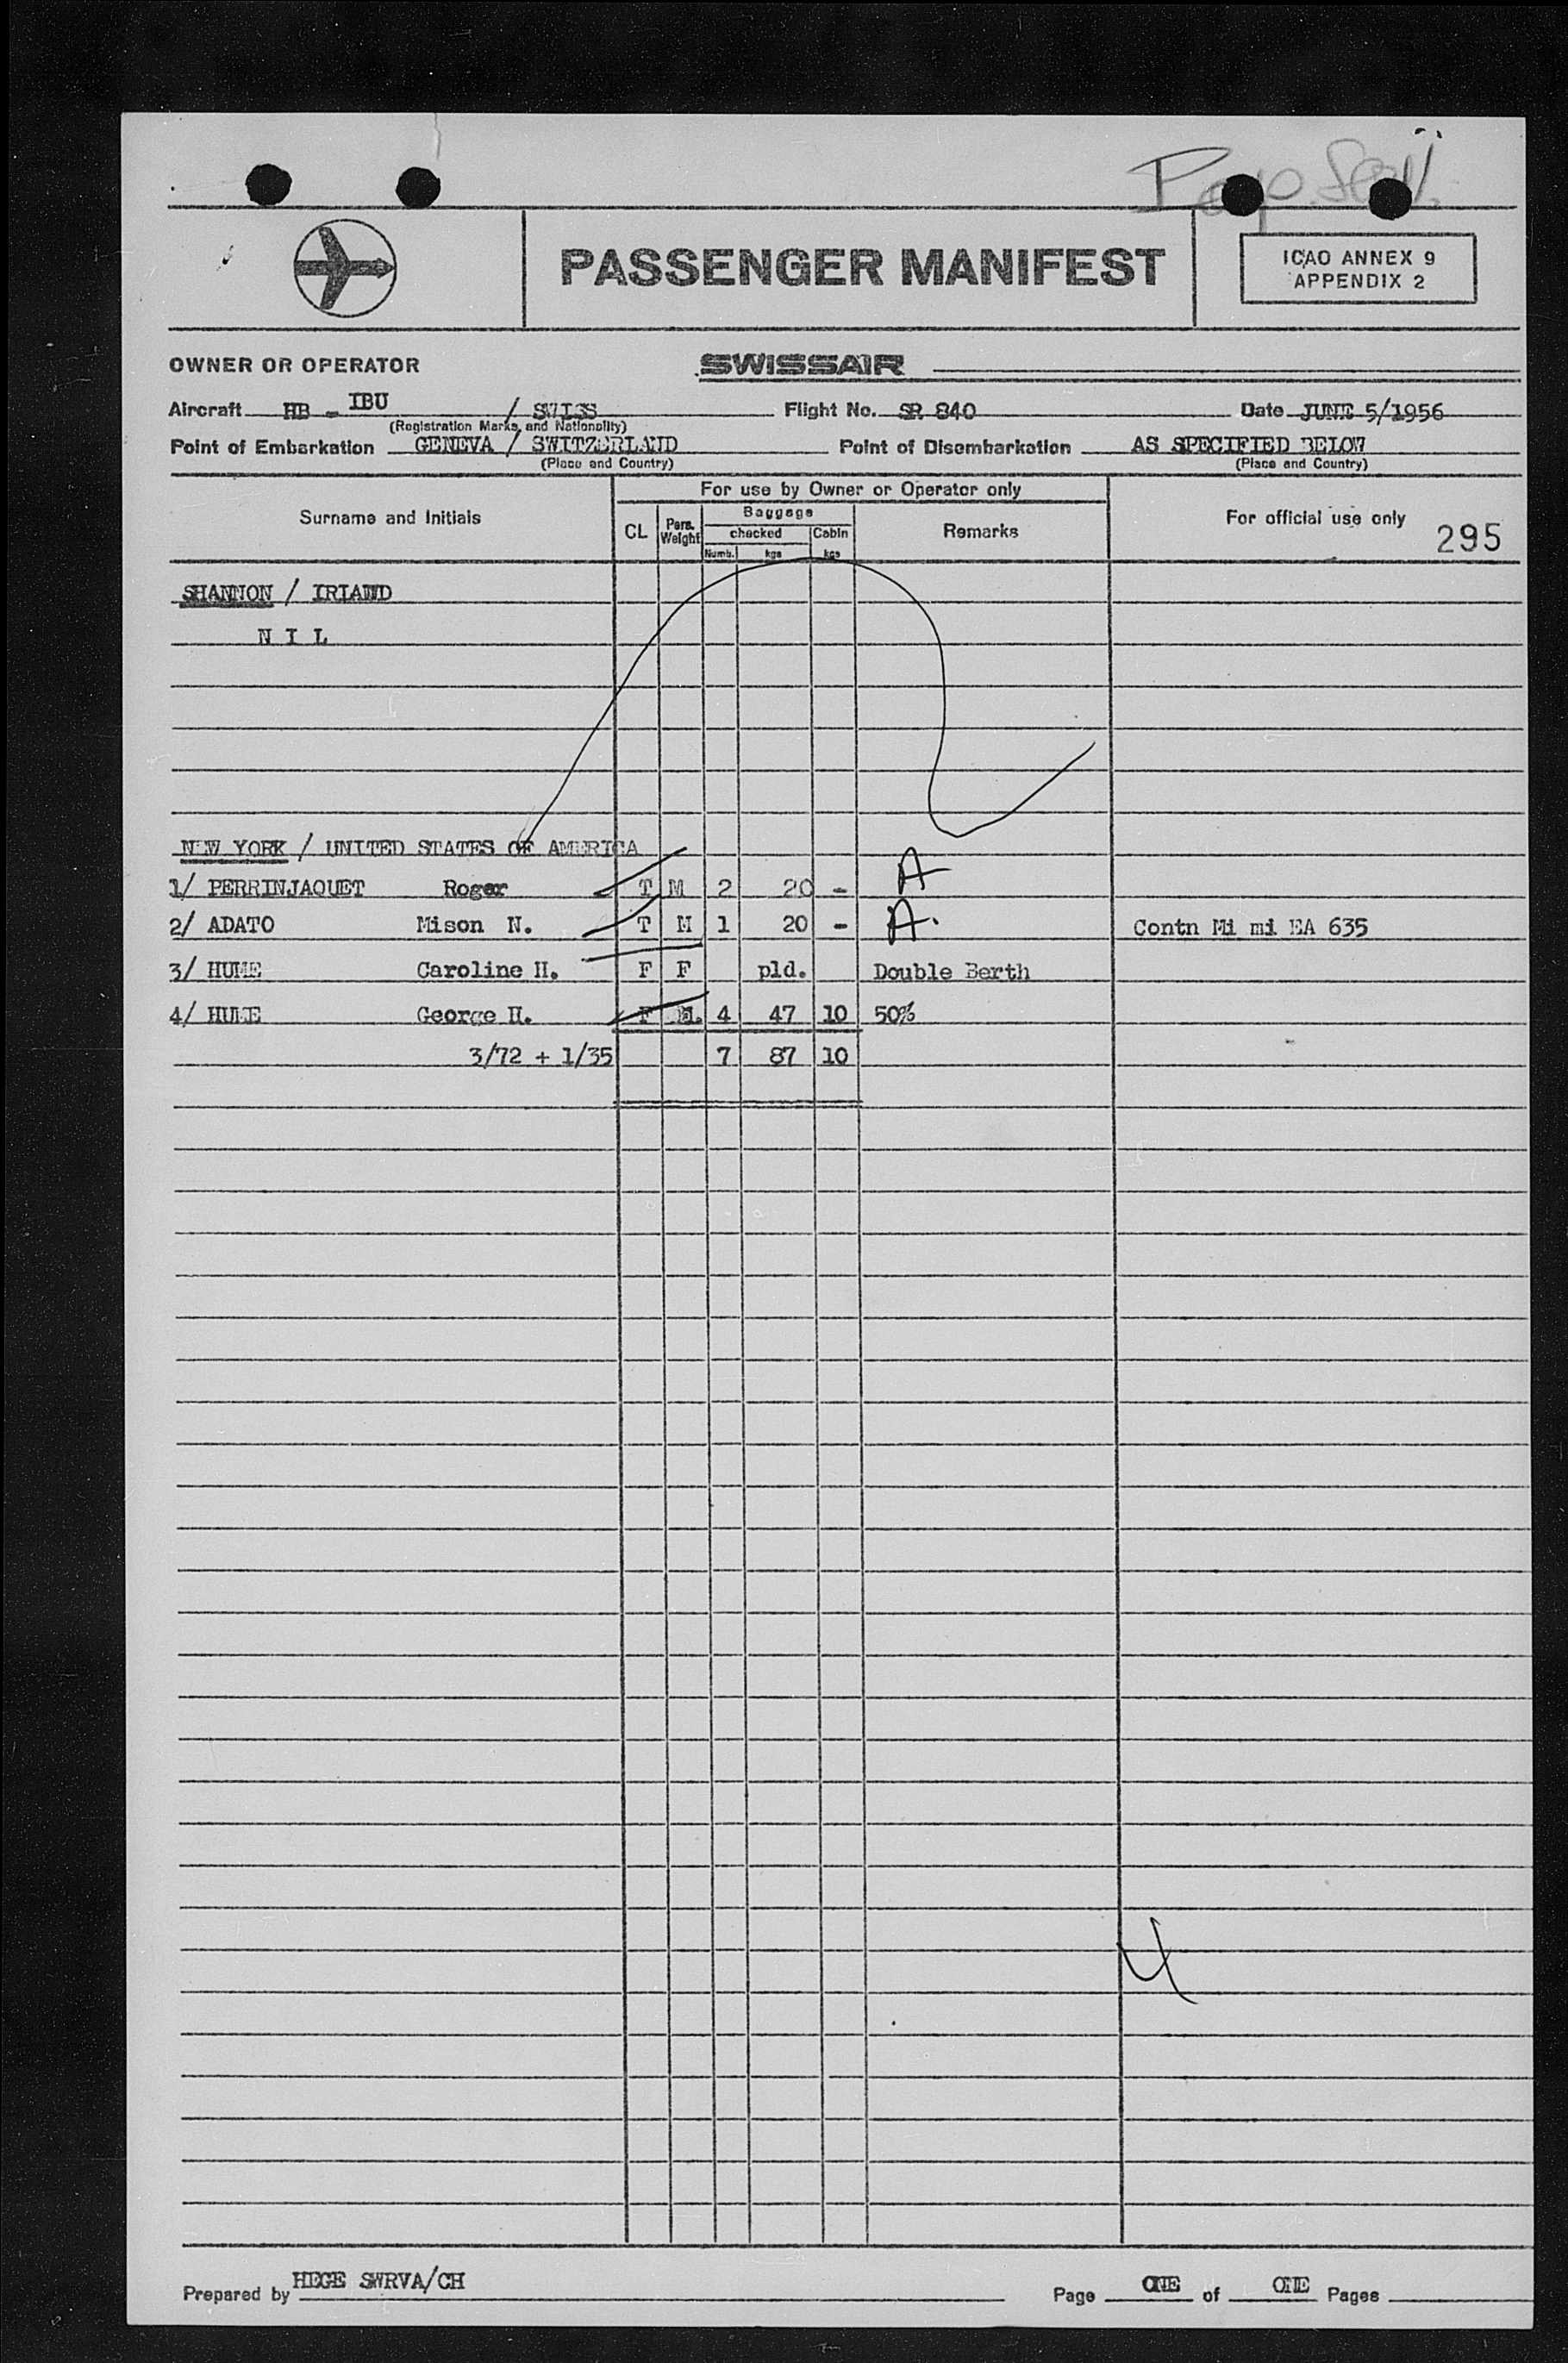 PASSENGER MANIFEST
ICAO ANNEX 9
APPENDIX 2
OWNER OR OPERATOR SWISSAIR
Aircraft HB - IBU / SWISS Flight No. SR 840 Date JUNE 5/1956
(Registration Marks and Nationality)
Point of Embarkation GENEVA / SWITZERLAND Point of Disembarkation AS SPECIFIED BELOW
(Place and Country) (Place and Country)
For use by Owner or Operator only
Surname and Initials CL Pers. Weight Baggage Remarks For official use only 295
checked Cabin
Numb. kgs kgs
SHANNON / IRLAND
N I L
NEW YORK / UNITED STATES OF AMERICA
1/ PERRINJAQUET Roger T M 2 20 - A
2/ ADATO Mison N. T M 1 20 - A. Contn Mi mi EA 635
3/ HUME Caroline H. F F pld. Double Berth
4/ HUME George H. F M. 4 47 10 50%
3/72 + 1/35 7 87 10
4
Prepared by HEGE SWRVA/CH Page ONE of ONE Pages